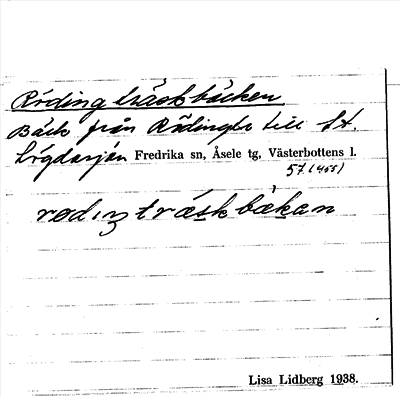 Rödingträskbäcken
Bäck från Rödingtr till St.
Lögdasjön Fredrika sn, Åsele tg, Västerbottens l.
57 (455)
rødıŋtræskbækan
Lisa Lidberg 1938.